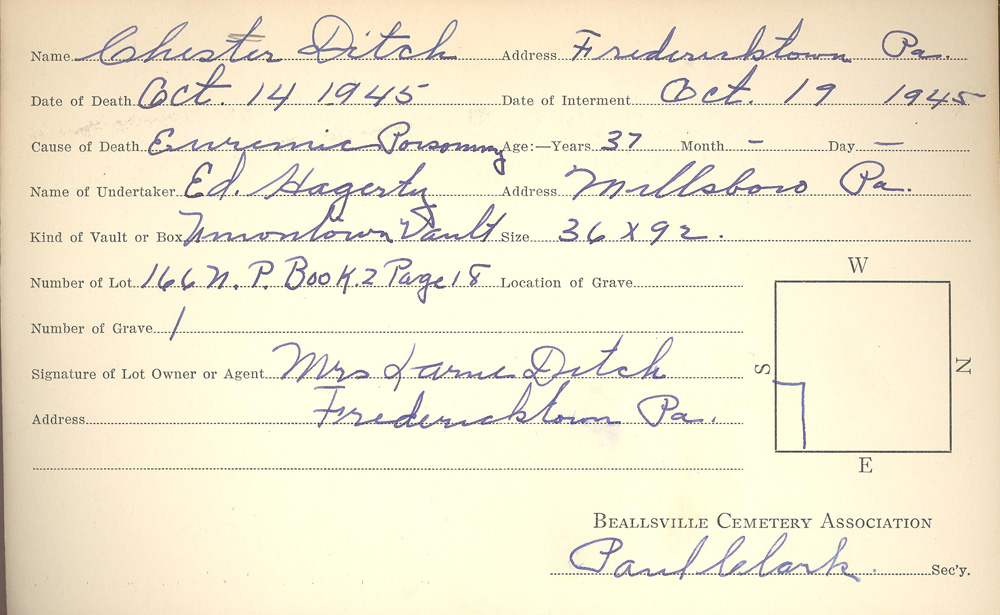 Name Chester Ditch Address Fredericktown Pa.
Date of Death Oct. 14 1945 Date of Interment Oct. 19 1945
Cause of Death Euremic Poisoning Age:—Years 37 Month - Day -
Name of Undertaker Ed. Hagerty Address Millsboro Pa.
Kind of Vault or Box Uniontown Vault Size 36 X 92.
Number of Lot 166 N. P. Book. 2 Page 18 Location of Grave
W
Number of Grave 1
Signature of Lot Owner or Agent Mrs Ditch
S N
Address Fredericktown Pa.
E
BEALLSVILLE CEMETERY ASSOCIATION
Paul Clark Sec'y.